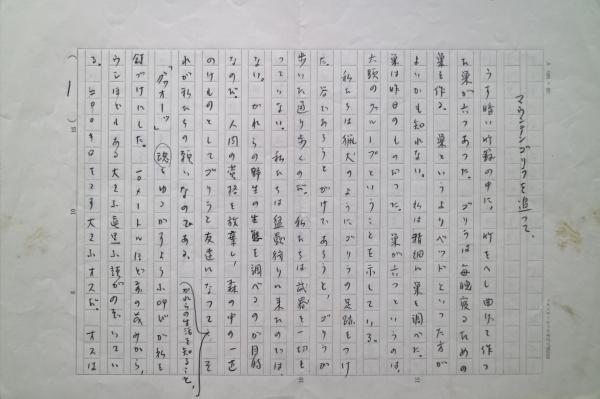 マウンテンゴリラを追って。
うす暗い竹藪の中に、竹をへし曲げて作っ
た巣が六つあった。ゴリラは毎晩寝るための
巣を作る。巣というよりベッドといった方が
よいかも知れない。私は精細に巣を調べた。
巣は昨日のものだった。巣が六つというのは、
六頭のグループということを示している。
私たちは猟犬のようにゴリラの足跡をつけ
た。谷であろうとがけであろうと、ゴリラが
歩いた通り歩くのだ。私たちは武器を一切も
っていない。私たちは猛獣狩りに来たのでは
ない。かれらの野生の生態を調べるのが目的
なのだ。人間の資格を放棄し、森の中の一匹
のけものとしてゴリラと友達になって
かれらの生活を知ること、
そ
れが私たちの願いなのである。
「グァオーッ」魂をゆさぶるような叫びが私を
釘づけにした。一〇メートルほど前の茂みから、
ウシほどもある大きな真黒な顔がのぞいてい
る。二〇〇キロをこす大きなオスだ。オスは
(1)